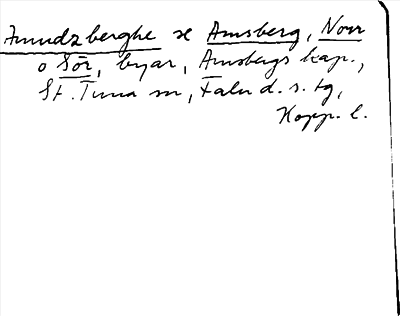 Amudzberghe se Amsberg, Norr
o Sör, byar, Amsbergs kap.,
St. Tuna sn, Falu d. s. tg,
Kopp. l.